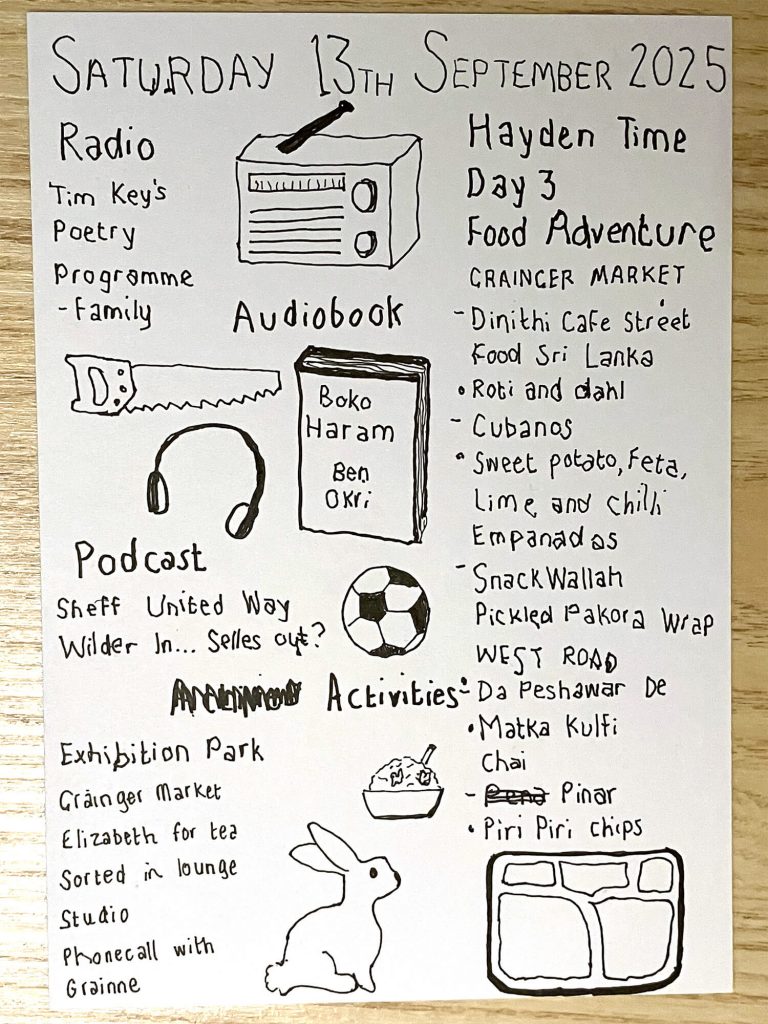 SATURDAY 13TH SEPTEMBER 2025
Radio
Tim Key's
Poetry
Programme
- Family
Audiobook
Boko
Haram
Ben
Okri
Podcast
Sheff United Way
Wilder In... Selles out?
Activities
Exhibition Park
Grainger Market
Elizabeth for tea
Sorted in lounge
Studio
Phonecall with
Grainne
Hayden Time
Day 3
Food Adventure
GRAINGER MARKET
- Dinithi Cafe Street
Food Sri Lanka
• Roti and dahl
- Cubanos
• Sweet potato, Feta,
Lime and Chilli
Empanadas
- SnackWallah
Pickled Pakora Wrap
WEST ROAD
- Da Peshawar De
• Matka Kulfi
Chai
- Pinar
• Piri Piri chips